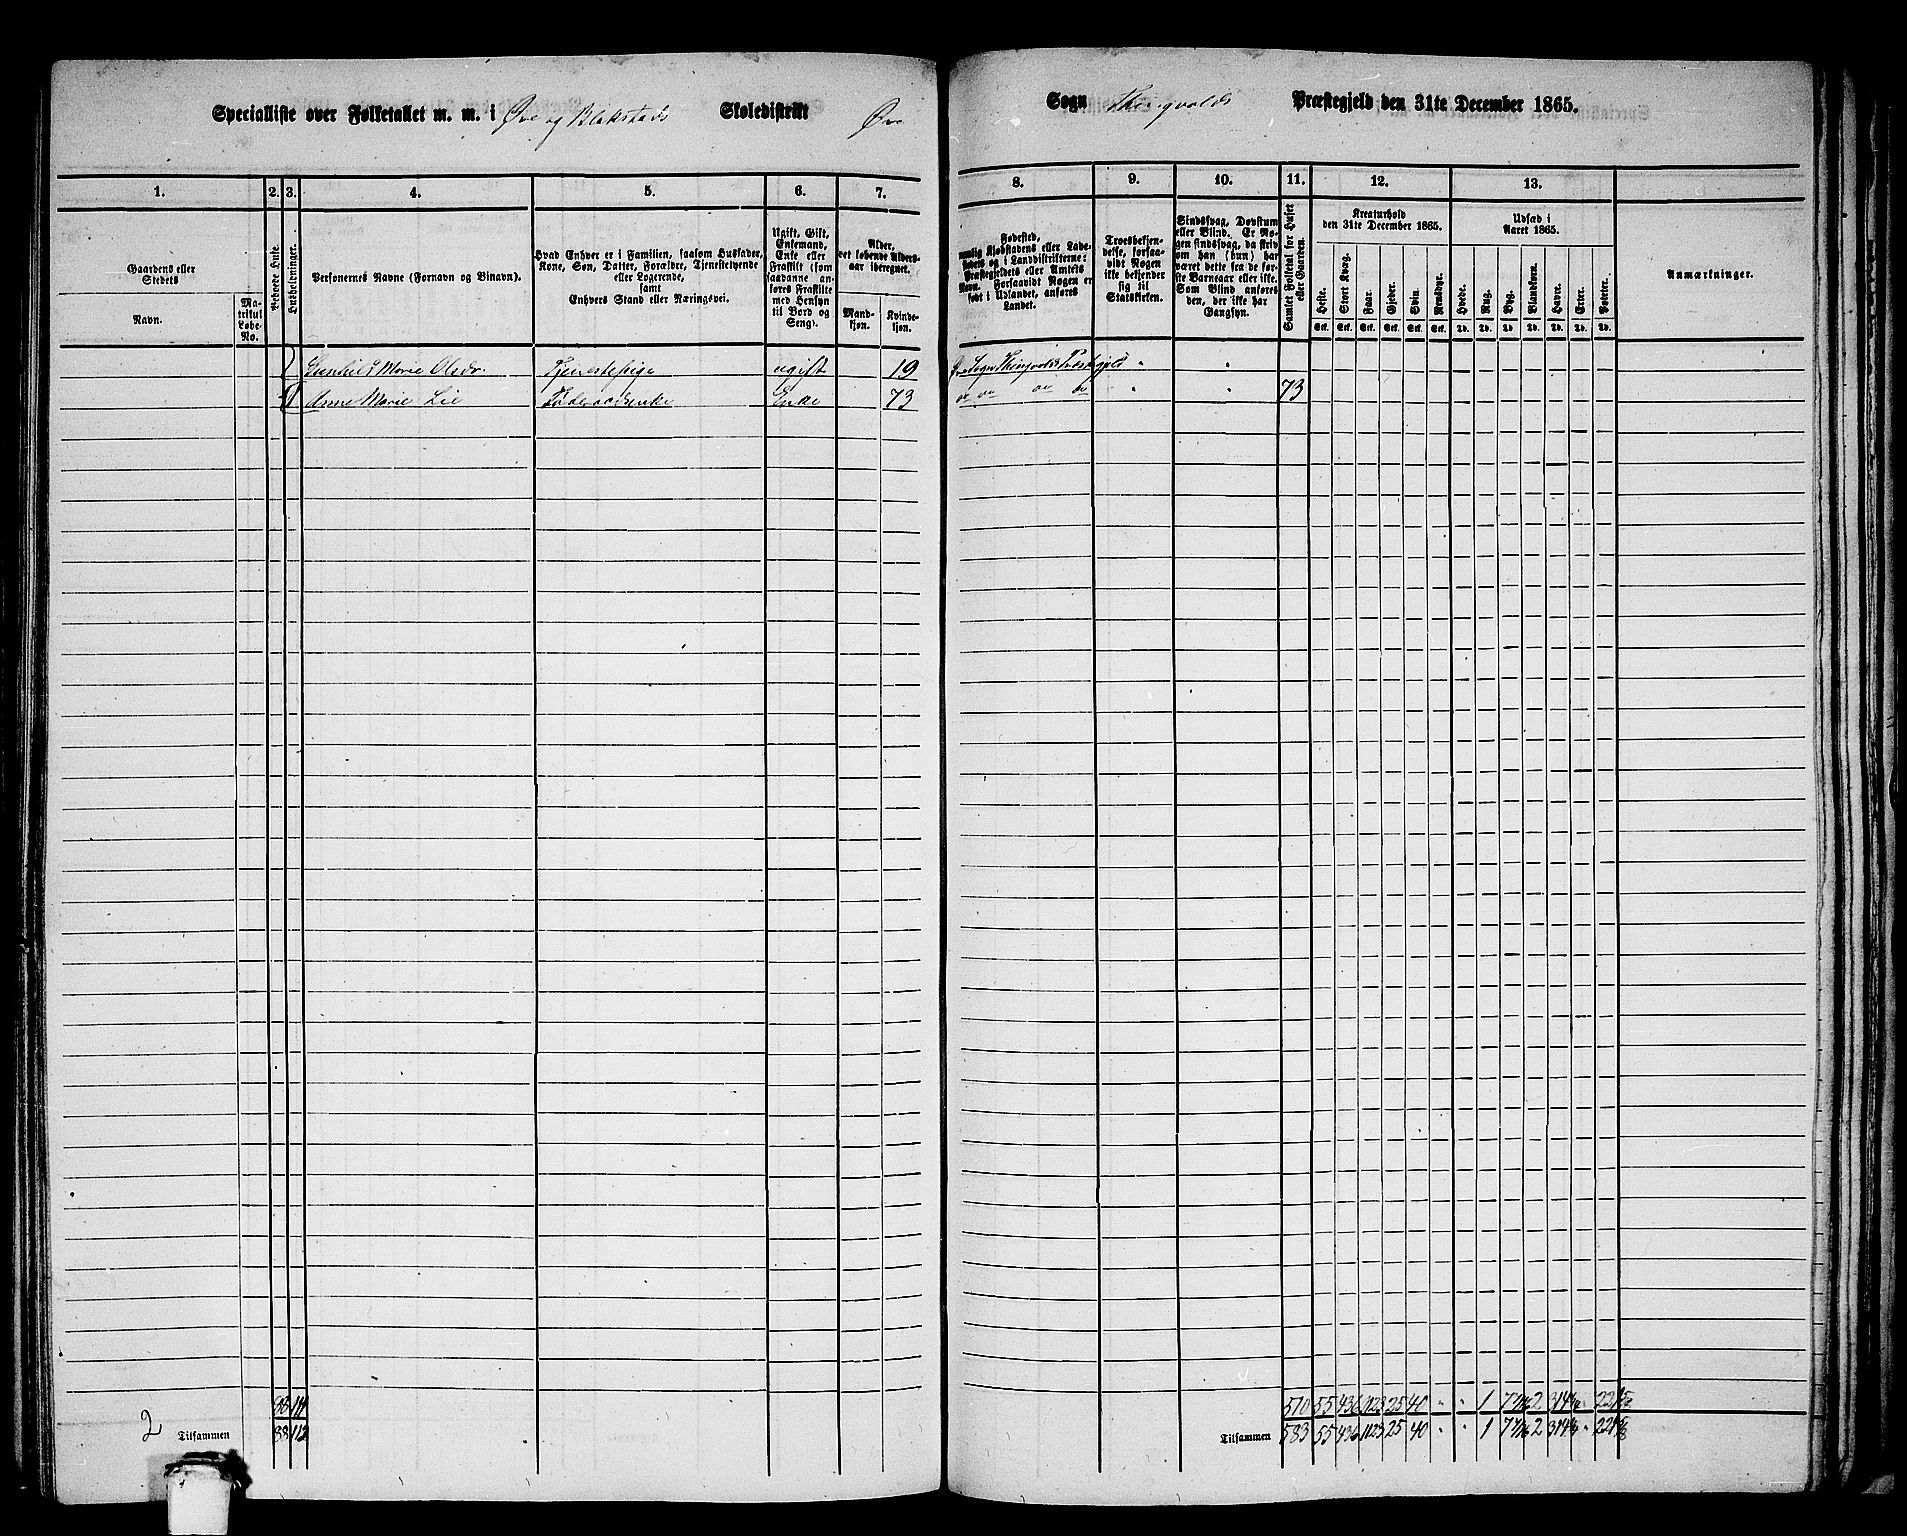 Specialliste over Folketallet m. m. i Øve og Blakstads Skoledistrikt Øve
Sogn Præstegjeld den 31te December 1865.
1.
2.
3.
4.
5.
6.
7.
8.
9.
10.
11.
12.
13.
Gaardens eller Stedets
Navn.
Matrikul Løbe-No.
Beboede Huse.
Husholdninger.
Personernes Navne (Fornavn og Binavn).
Hvad Enhver er i Familien, saasom Husfader, Kone, Søn, Datter, Forældre, Tjenestetyende eller Logerende, samt Enhvers Stand eller Næringsvei.
Ugift, Gift, Enkemand, Enke eller Fraskilt (som saadanne anføres Fraskilte med Hensyn til Bord og Seng).
Alder, det løbende Alders-aar iberegnet.
Mand-kjøn.
Kvinde-kjøn.
Fødested, nemlig Kjøbstadens eller Ladestedets og i Landdistrikterne: Præstegjeldets eller Amtets Navn. Forsaavidt Nogen er født i Udlandet, anføres Landet.
Troesbekjendelse, forsaavidt Nogen ikke bekjender sig til Statskirken.
Sindssvag, Døvstum eller Blind. Er Nogen sindssvag, da skrives om han (hun) har været dette fra de første Barneaar eller ikke. Som Blind anføres den, der ikke har Gangsyn.
Samlet Folketal for Huset eller Gaarden.
Kreaturhold den 31te December 1865.
Udsæd i Aaret 1865.
Heste. Stort Kvæg. Faar. Gjeder. Svin. Rensdyr. Hvede. Rug. Byg. Blandkorn. Havre. Erter. Poteter.
Stk. Stk. Stk. Stk. Stk. Stk. Td. Td. Td. Td. Td. Td. Td.
Anmærkninger.
Gunhild Marie Olsdr. Tjenestepige ugift 19 " "
1 Anne Marie Lie Føderaadsenke Enke 73 " " 73
88 111 510 55 436 1123 25 40 " " 1
2 Tilsammen 88 112 Tilsammen 583 55 436 1123 25 40 " " 1